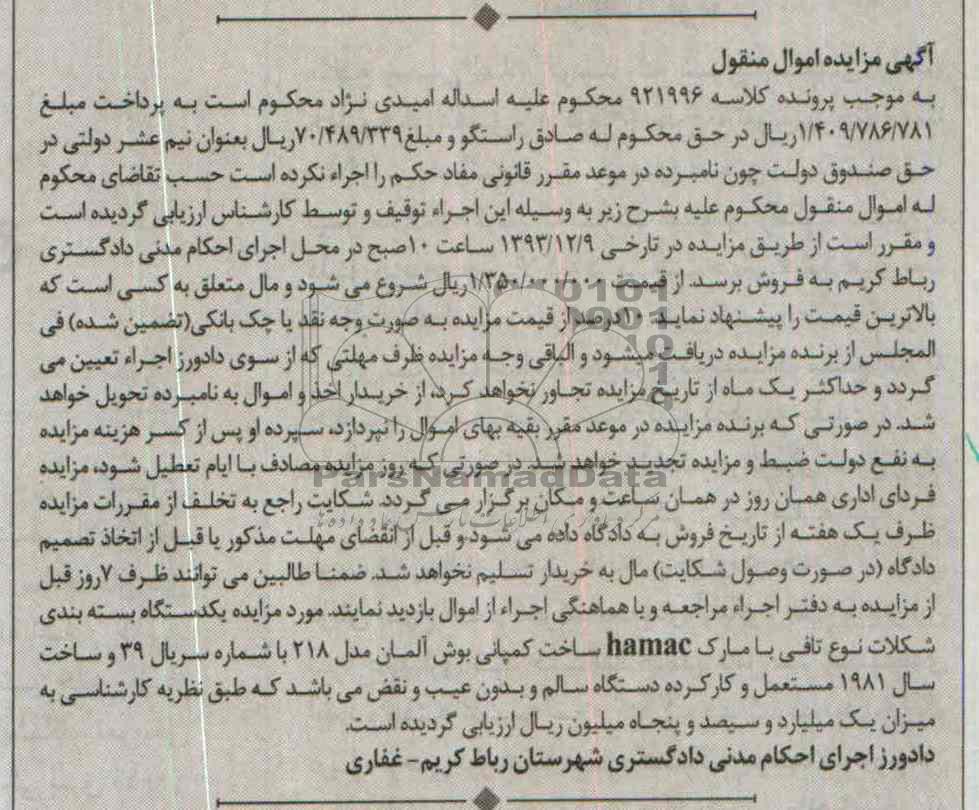 آگهی مزایده اموال منقول
به موجب پرونده کلاسه ۹۲۱۹۹۶ محکوم علیه اسداله امیدی نژاد محکوم است به پرداخت مبلغ
۱/۴۰۹/۷۸۶/۷۸۱ریال در حق محکوم له صادق راستگو و مبلغ۷۰/۴۸۹/۳۳۹ریال بعنوان نیم عشر دولتی در
حق صندوق دولت چون نامبرده در موعد مقرر قانونی مفاد حکم را اجراء نکرده است حسب تقاضای محکوم
له اموال منقول محکوم علیه بشرح زیر به وسیله این اجراء توقیف و توسط کارشناس ارزیابی گردیده است
و مقرر است از طریق مزایده در تارخی ۱۳۹۳/۱۲/۹ ساعت ۱۰صبح در محل اجرای احکام مدنی دادگستری
رباط کریم به فروش برسد. از قیمت ۱/۳۵۰/۰۰۰/۰۰۰ریال شروع می شود و مال متعلق به کسی است که
بالاترین قیمت را پیشنهاد نماید. ۱۰درصد از قیمت مزایده به صورت وجه نقد یا چک بانکی(تضمین شده) فی
المجلس از برنده مزایده دریافت میشود و الباقی وجه مزایده ظرف مهلتی که از سوی دادورز اجراء تعیین می
گردد و حداکثر یک ماه از تاریخ مزایده تجاور نخواهد کرد، از خریدار اخذ و اموال به نامبرده تحویل خواهد
شد. در صورتی که برنده مزایده در موعد مقرر بقیه بهای اموال را نپردازد، سپرده او پس از کسر هزینه مزایده
به نفع دولت ضبط و مزایده تجدید خواهد شد. در صورتی که روز مزایده مصادف با ایام تعطیل شود، مزایده
فردای اداری همان روز در همان ساعت و مکان برگزار می گردد. شکایت راجع به تخلف از مقررات مزایده
ظرف یک هفته از تاریخ فروش به دادگاه داده می شود و قبل از انقضای مهلت مذکور یا قبل از اتخاذ تصمیم
دادگاه (در صورت وصول شکایت) مال به خریدار تسلیم نخواهد شد. ضمنا طالبین می توانند ظرف ۷روز قبل
از مزایده به دفتر اجراء مراجعه و یا هماهنگی اجراء از اموال بازدید نمایند. مورد مزایده یکدستگاه بسته بندی
شکلات نوع تافی با مارک hamac ساخت کمپانی بوش آلمان مدل ۲۱۸ با شماره سریال ۳۹ و ساخت
سال ۱۹۸۱ مستعمل و کارکرده دستگاه سالم و بدون عیب و نقض می باشد که طبق نظریه کارشناسی به
میزان یک میلیارد و سیصد و پنجاه میلیون ریال ارزیابی گردیده است.
دادورز اجرای احکام مدنی دادگستری شهرستان رباط کریم- غفاری
ParsNamadData